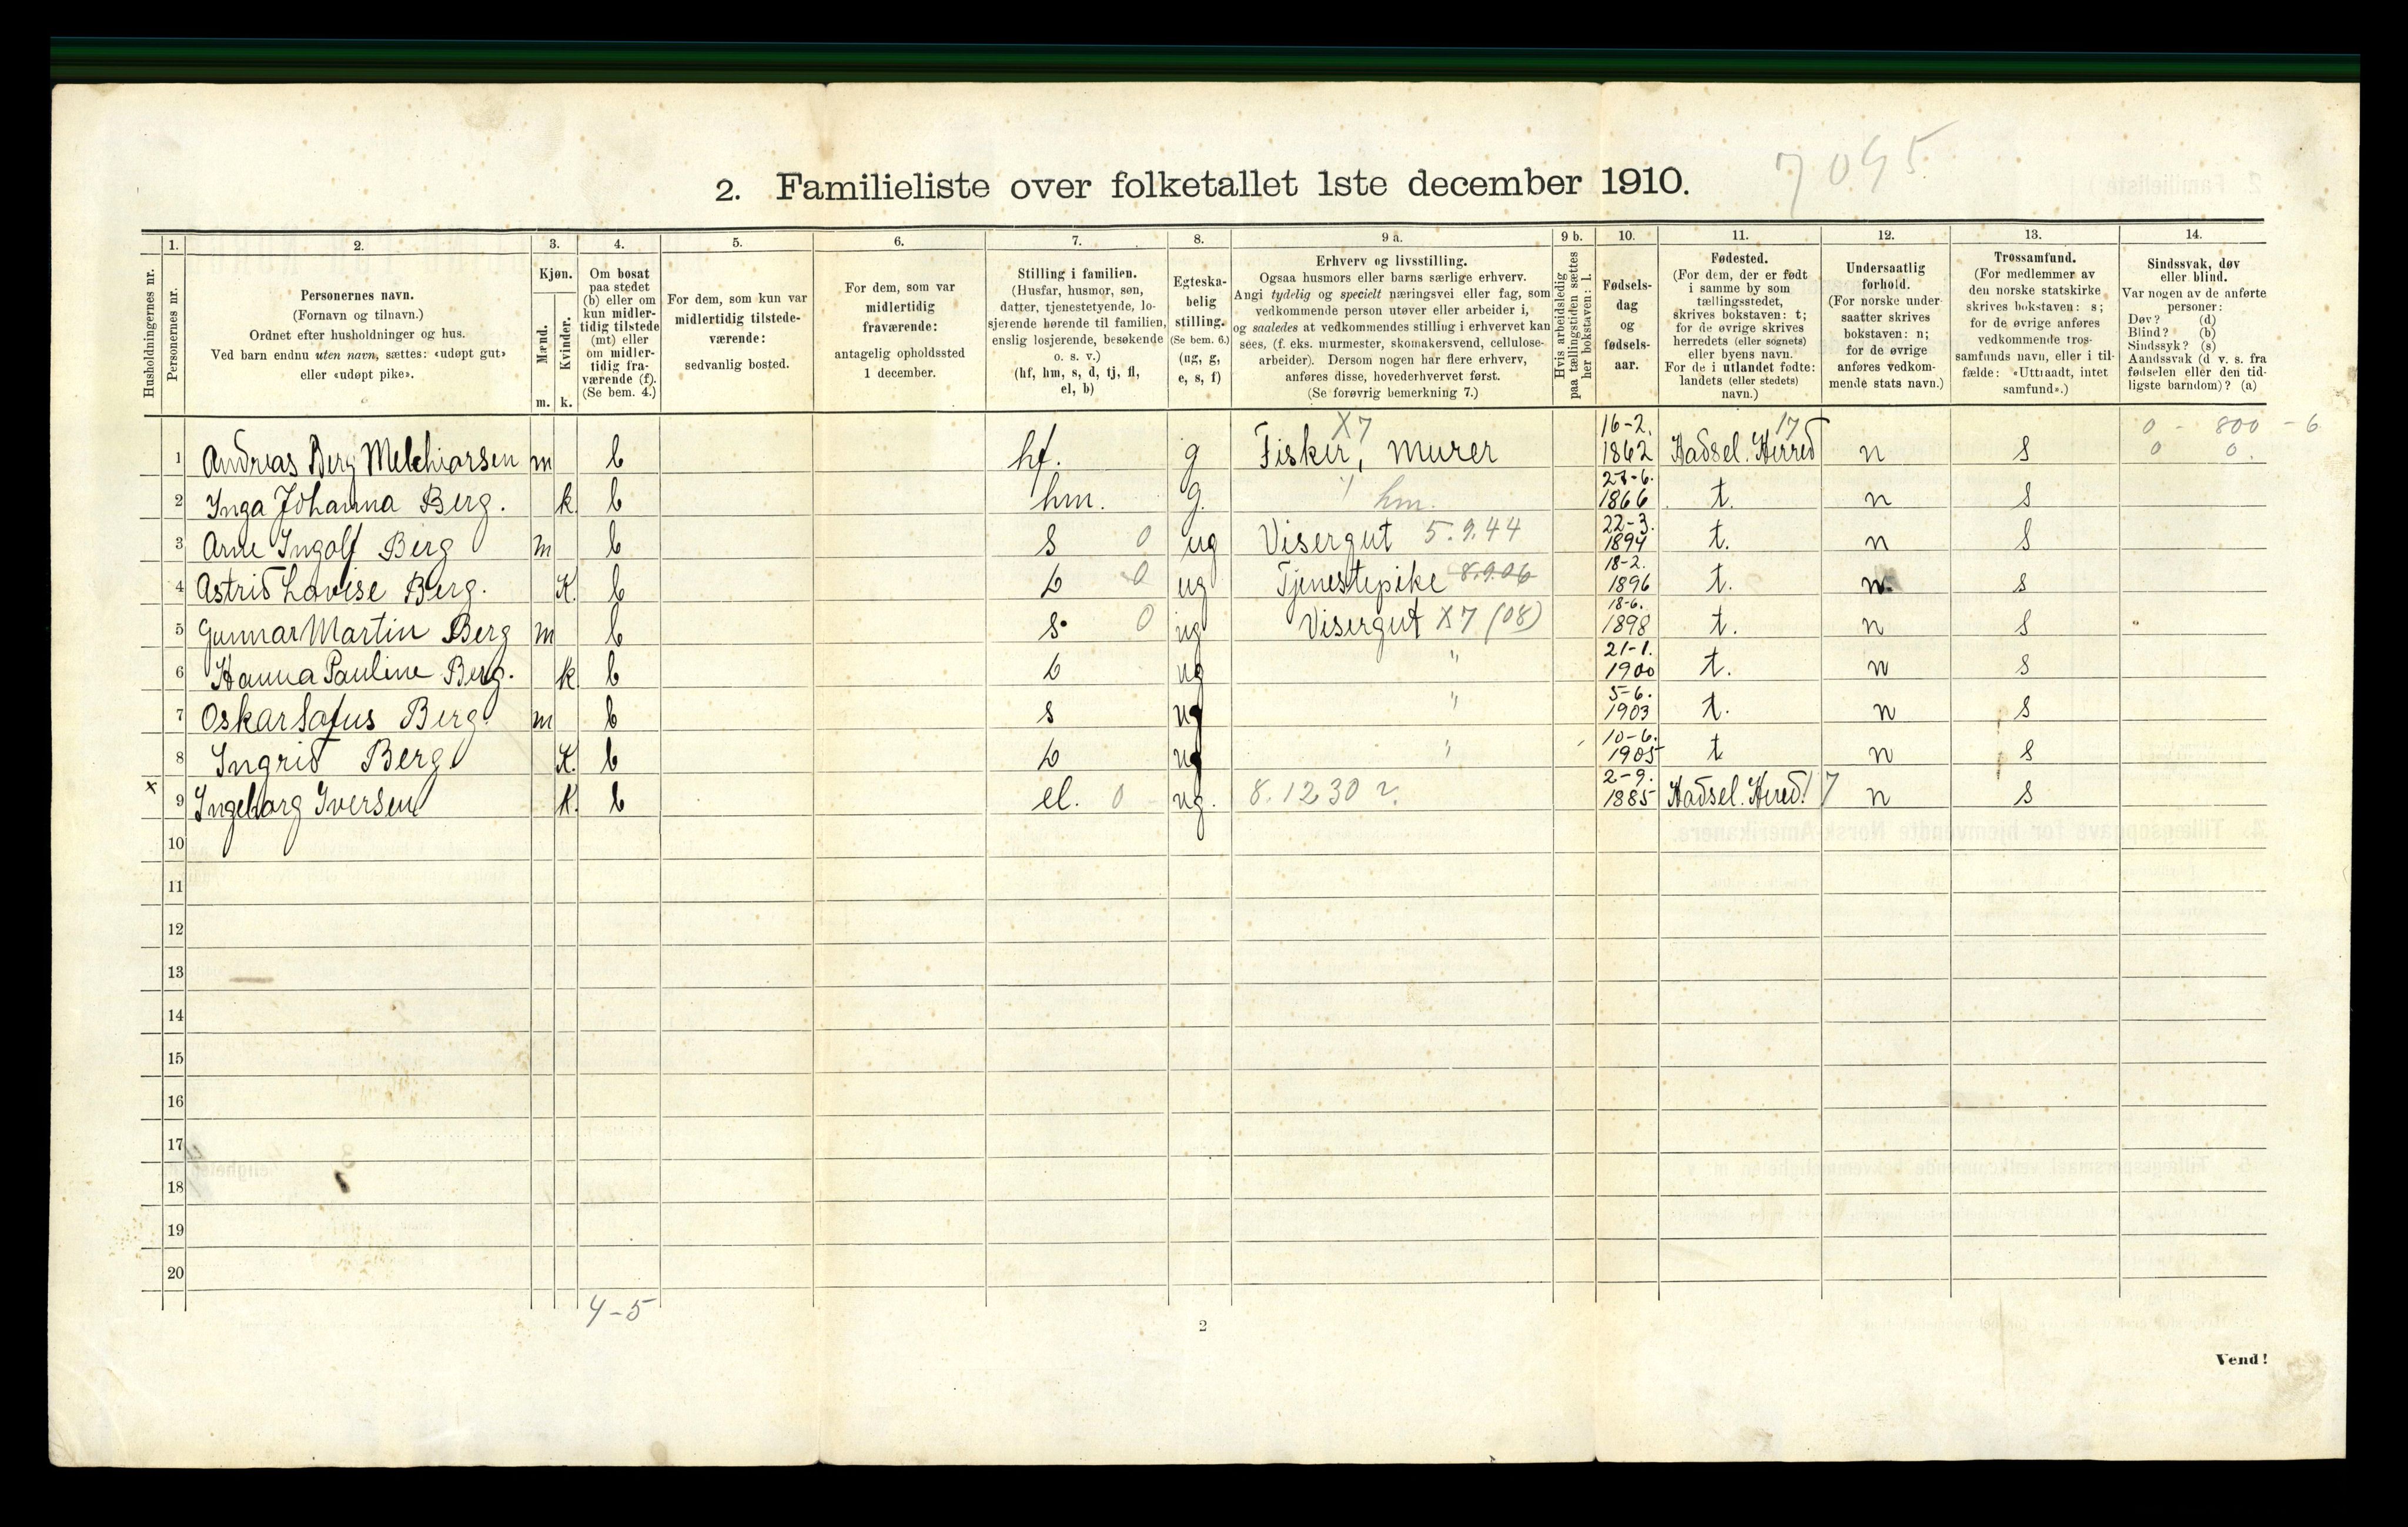 7095
2. Familieliste over folketallet 1ste december 1910.
Husholdningernes nr.
1.
Personernes nr.
2.
Personernes navn.
(Fornavn og tilnavn.)
Ordnet efter husholdninger og hus.
Ved barn endnu uten navn, sættes: «udøpt gut»
eller «udøpt pike».
3.
Kjøn.
Mænd.
Kvinder.
m. k.
4.
Om bosat
paa stedet
(b) eller om
kun midler-
tidig tilstede
(mt) eller
om midler-
tidig fra-
værende (f).
(Se bem. 4.)
5.
For dem, som kun var
midlertidig tilstede-
værende:
sedvanlig bosted.
6.
For dem, som var
midlertidig
fraværende:
antagelig opholdssted
1 december.
7.
Stilling i familien.
(Husfar, husmor, søn,
datter, tjenestetyende, lo-
sjerende hørende til familien,
enslig losjerende, besøkende
o. s. v.)
(hf, hm, s, d, tj, fl,
el, b)
8.
Egteska-
belig
stilling.
(Se bem. 6.)
(ug, g,
e, s, f)
9 a.
Erhverv og livsstilling.
Ogsaa husmors eller barns særlige erhverv.
Angi tydelig og specielt næringsvei eller fag, som
vedkommende person utøver eller arbeider i,
og saaledes at vedkommendes stilling i erhvervet kan
sees, (f. eks. murmester, skomakersvend, cellulose-
arbeider). Dersom nogen har flere erhverv,
anføres disse, hovederhvervet først.
(Se forøvrig bemerkning 7.)
9 b.
Hvis arbeidsledig
paa tællingstiden sættes
her bokstaven: l.
10.
Fødsels-
dag
og
fødsels-
aar.
11.
Fødested.
(For dem, der er født
i samme by som
tællingsstedet,
skrives bokstaven: t;
for de øvrige skrives
herredets (eller sognets)
eller byens navn.
For de i utlandet fødte:
landets (eller stedets)
navn.)
12.
Undersaatlig
forhold.
(For norske under-
saatter skrives
bokstaven: n;
for de øvrige
anføres vedkom-
mende stats navn.)
13.
Trossamfund.
(For medlemmer av
den norske statskirke
skrives bokstaven: s;
for de øvrige anføres
vedkommende tros-
samfunds navn, eller i til-
fælde: «Uttraadt, intet
samfund».)
14.
Sindssvak, døv
eller blind.
Var nogen av de anførte
personer:
Døv? (d)
Blind? (b)
Sindssyk? (s)
Aandssvak (d v. s. fra
fødselen eller den tid-
ligste barndom)? (a)
X7 16-2. 17 0 - 800 - 6
1 Andreas Berg Melchiorsen m b hf. g Fisker, murer 1862 Hadsel. Herred n s 0 0.
2 Inga Johanna Berg. k b hm. g. hm. 23-6. 1866 t. n s
3 Arne Ingolf Berg m b s 0 ug Visergut 5.9.44 22-3. 1894 t. n s
4 Astrid Lovise Berg. K. b d 0 ug Tjenestepike 8.9.06 18-2. 1896 t. n. s
5 Gunnar Martin Berg m b s. 0 ug Visergut X7 (08) 18-6. 1898 t. n s
6 Hanna Pauline Berg. k b d ug " 21-1. 1900 t. n s
7 Oskar Sofus Berg. m b s ug " 5-6. 1903 t. n s
8 Ingrid Berg K. b d ug " 10-6. 1905 t n s
x 9 Ingeborg Iversen K. b el. 0 ug. 8.12 30 2. 2-9. 1885 Hadsel. Herred. 17 n s
10
11
12
13
14
15
16
17
18
19
20
4-5
2
Vend!